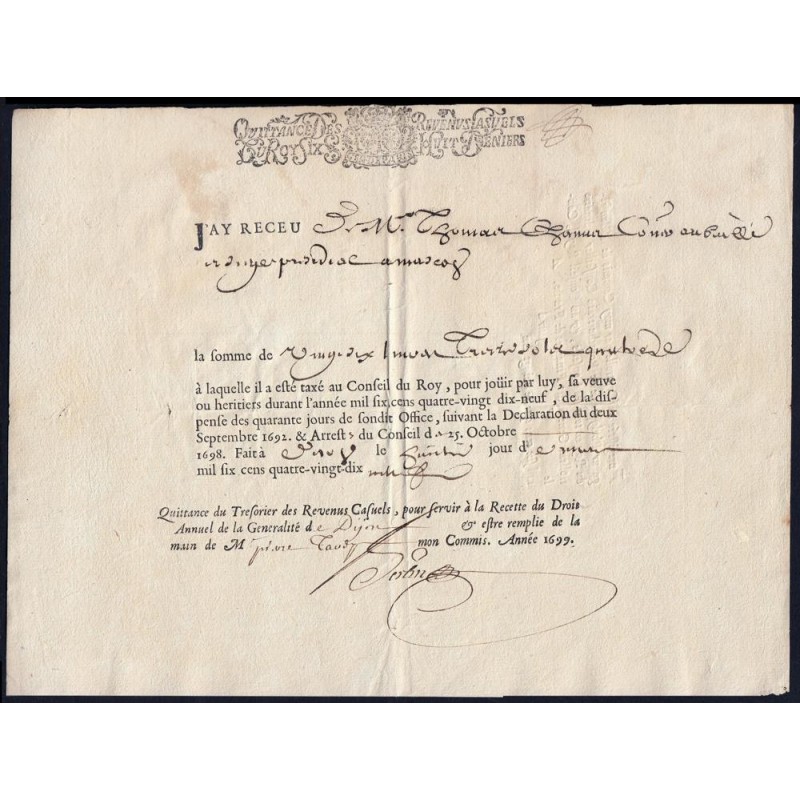 QUITTANCE DES REVENUS CASUELS
DU ROY SIX HUIT DENIERS
J'AY RECEU De Mr. Thomas Chanut Coner au baille
et siege presidial a mascon
la somme de vingt six livres Treize sols quatre d
à laquelle il a esté taxé au Conseil du Roy, pour joüir par luy, sa veuve
ou heritiers durant l'année mil six cens quatre-vingt dix-neuf, de la dis-
pense des quarante jours de sondit Office, suivant la Declaration du deux
Septembre 1692. & Arrests du Conseil de 25. Octobre
1698. Fait à le jour de mars
mil six cens quatre-vingt-dix neuf
Quittance du Tresorier des Revenus Casuels, pour servir à la Recette du Droit
Annuel de la Generalité de Dijon & estre remplie de la
main de M pierre mon Commis. Année 1699.